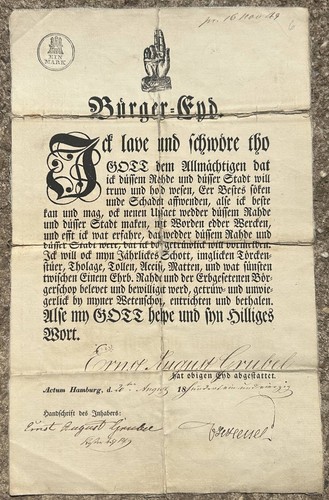 pr. 16 Nov 49
6
EIN
MARK
Bürger-Eyd.
Ick lave und schwöre tho
GOTT dem Allmächtigen dat
ick düssem Rahde und düsser Stadt will
truw und hold wesen, Eer Bestes söken
unde Schaden affwenden, alse ick beste
kan und mag, ock nenen Upsaet wedder düssem Rahde
und düsser Stadt maken, mit Worden edder Wercken,
und efft ick wat erfahre, dat wedder düssem Rahde und
düsser Stadt were, dat ick do getrüwlick will vormelden.
Ick will ock myn Jährliches Schott, imglicken Törcken-
stüer, Tholage, Tollen, Accise, Matten, und wat sünsten
twischen Einem Ehrb. Rahde und der Erbgesetenen Bör-
gerschop belevet und bewilliget werd, getrüw- und unwie-
gerlick by myner Wetenschop, entrichten und bethalen.
Alse my GOTT helpe und syn Hilliges
Wort.
Ernst August Grubel
hat obigen Eyd abgestattet.
Actum Hamburg, d. August 18
Handschrift des Inhabers:
Ernst August